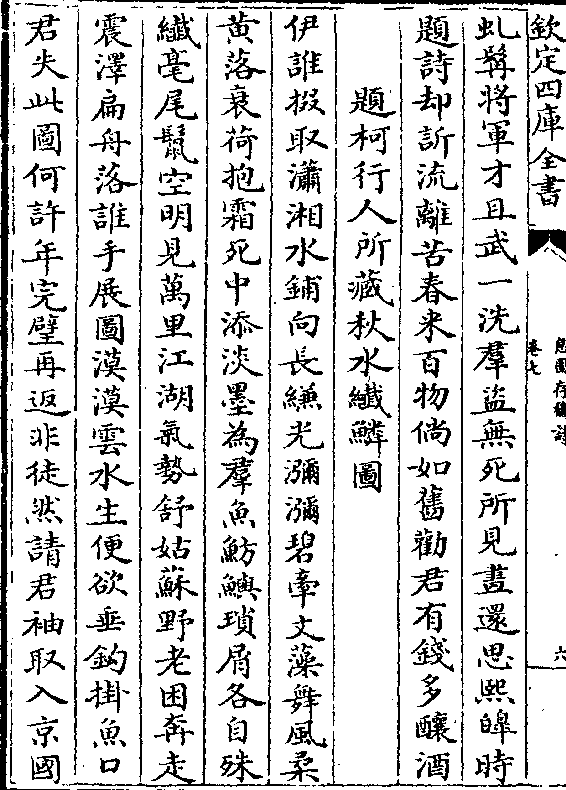 欽定四庫全書
存稿詩
卷七
六
虬髯將軍才且武一洗羣盜無死所見畫還思熙皡時
題詩却訴流離苦春来百物倘如舊勸君有錢多釀酒
題柯行人所藏秋水纎鱗圖
伊誰掇取瀟湘水鋪向長縑光瀰瀰碧牽文藻舞風柔
黄落衰荷抱霜死中添淡墨為羣魚魴鱮瑣屑各自殊
纎毫尾鬛空明見萬里江湖氣勢舒姑蘇野老困奔走
震澤扁舟落誰手展圖漠漠雲水生便欲垂鈎掛魚口
君失此圖何許年完璧再返非徒然請君袖取入京國